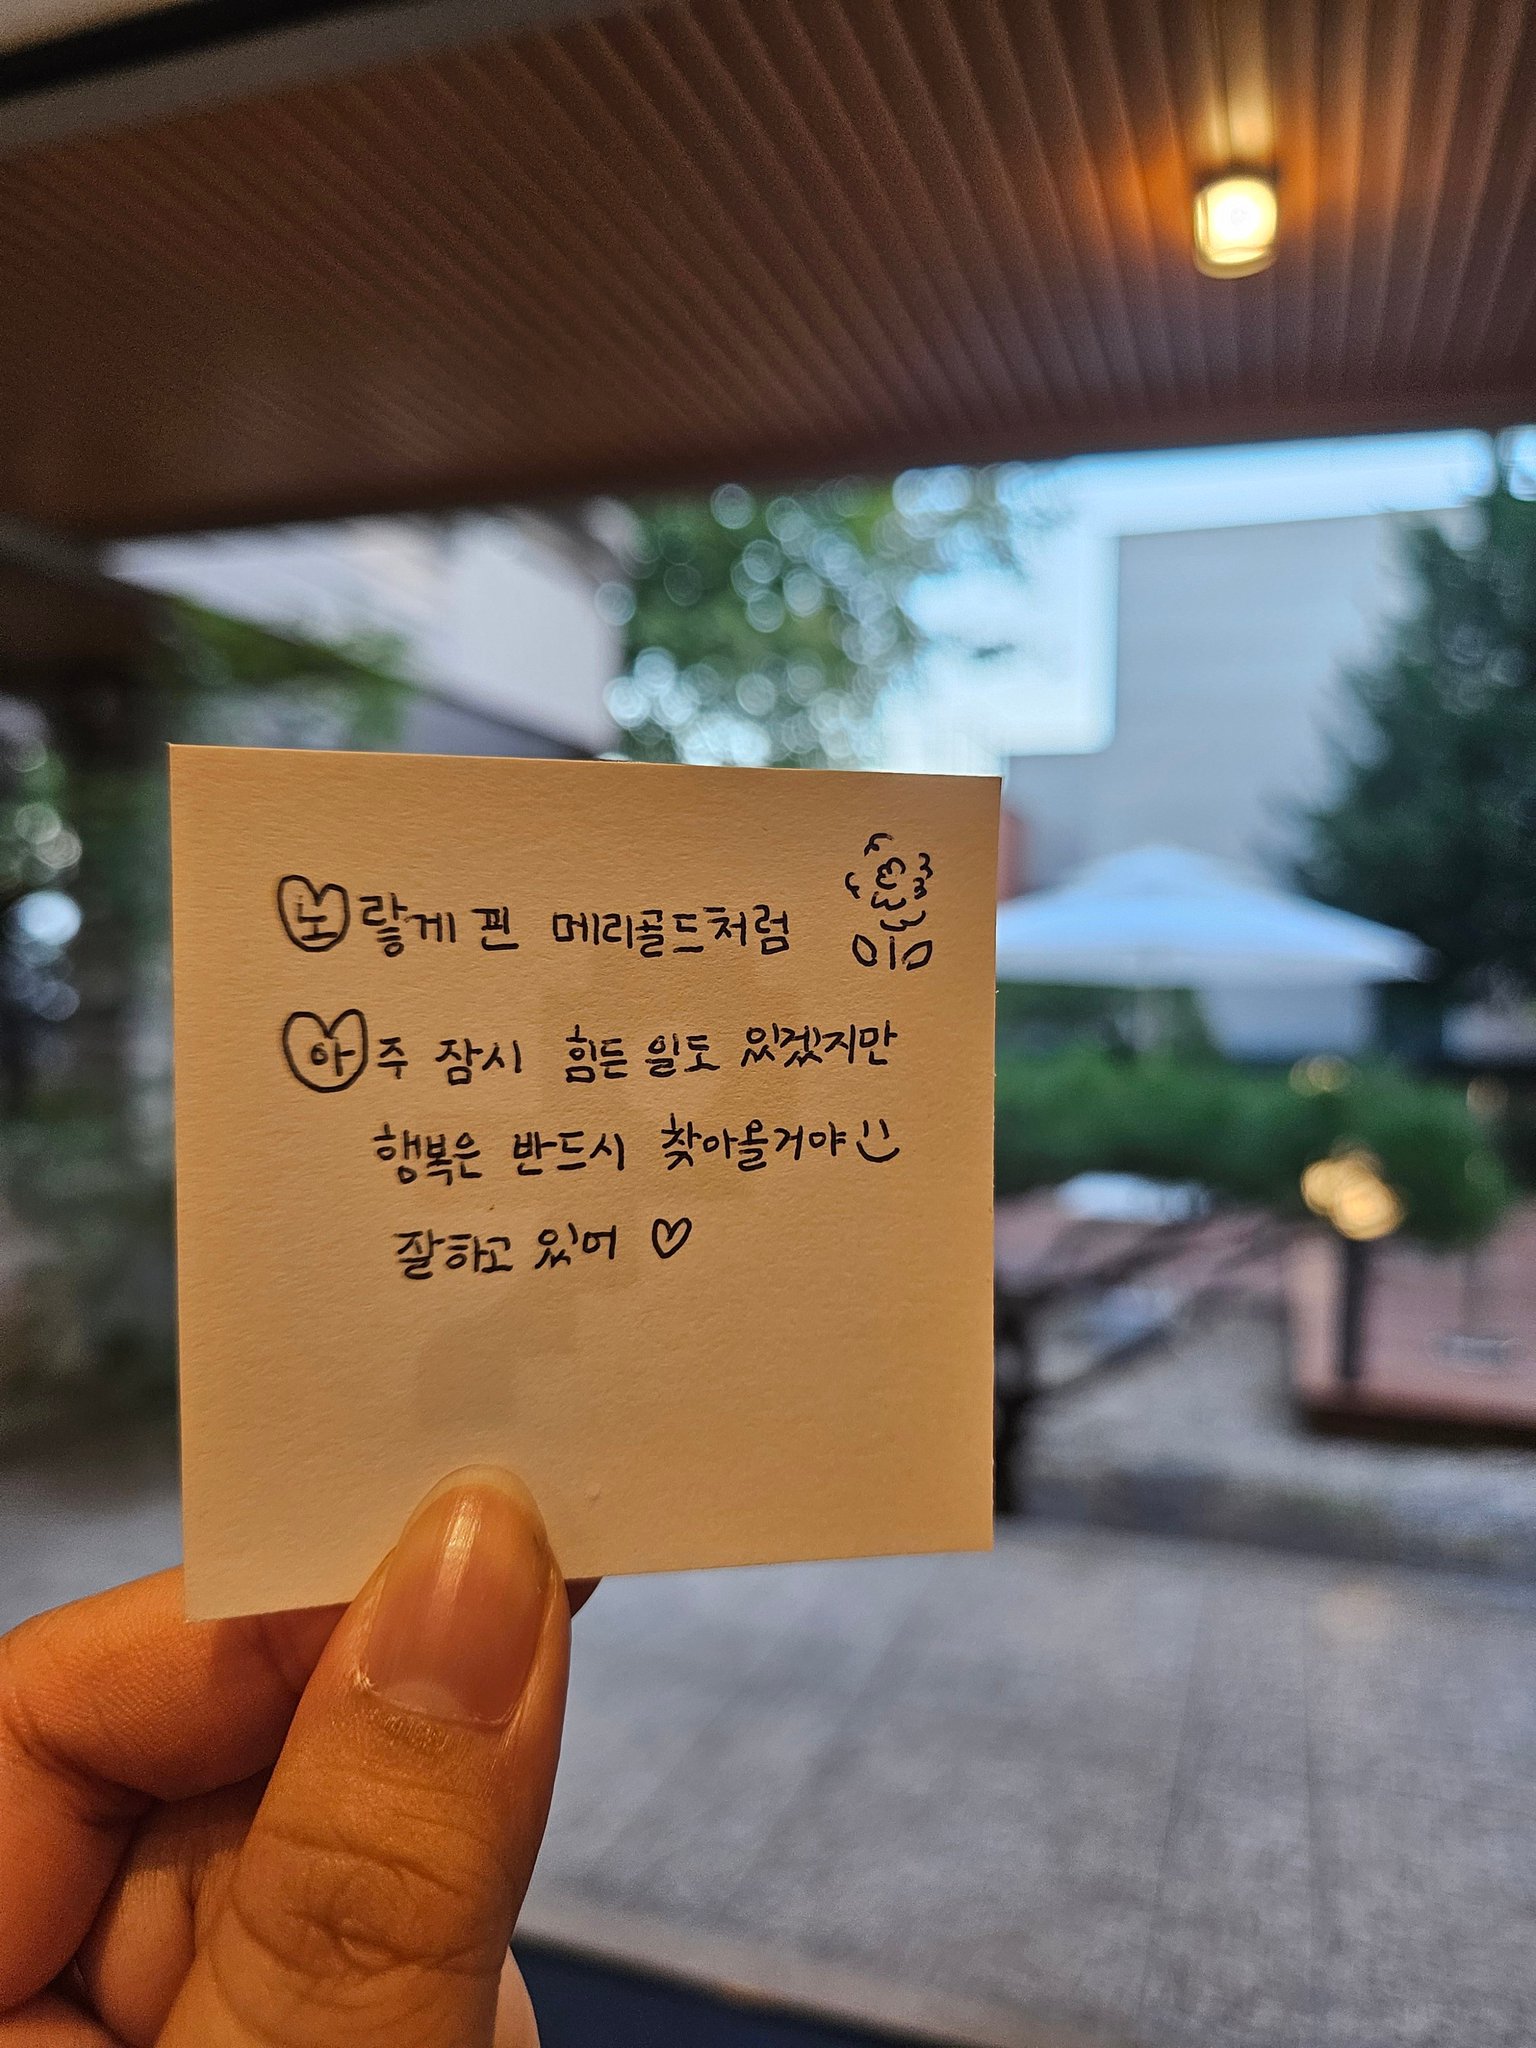 노랗게 핀 메리골드처럼
아주 잠시 힘든 일도 있겠지만
행복은 반드시 찾아올거야 :)
잘하고 있어 ♡